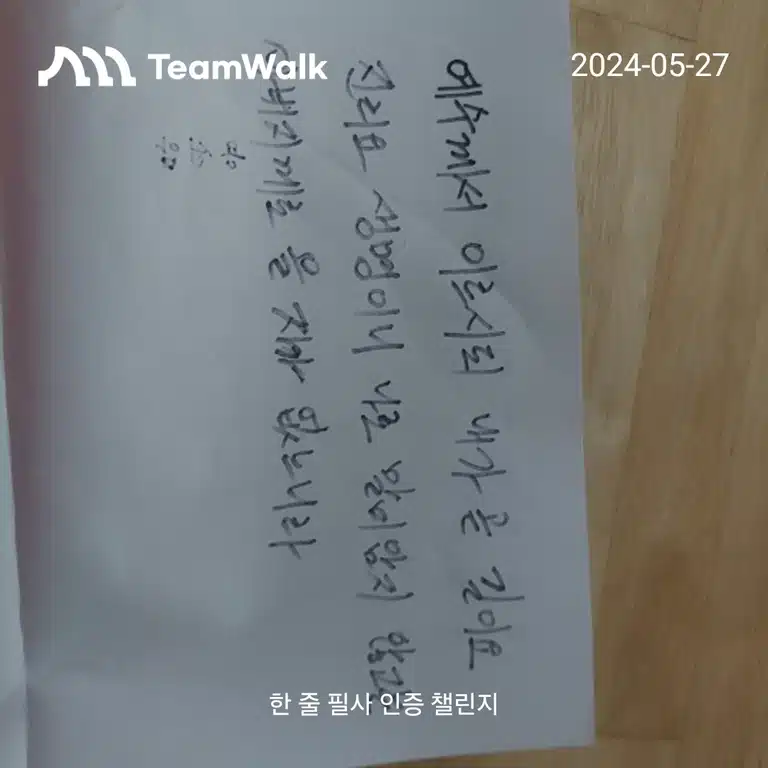 TeamWalk
2024-05-27
예수께서 이르시되 내가 곧 길이요
진리요 생명이니 나로 말미암지 않고는
아버지께로 올 자가 없느니라
한 줄 필사 인증 챌린지